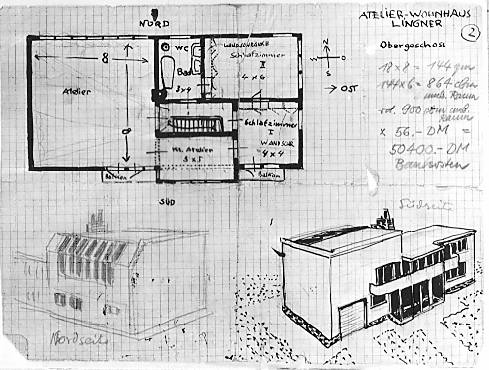 ATELIER-WOHNHAUS
LINGNER
2
NORD
Obergeschoss
WC
Bad
3x4
WANDSCHRANK
Schlafzimmer
II
4 x 6
N
S
OST
18 x 8 = 144 qm
144 x 6 = 864 cbm
umb. Raum
rd. 900 cbm umb.
Raum
x 56.- DM =
50400.- DM
Baukosten
8
8
Atelier
Schlafzimmer
I
WANDSCHR.
4 x 4
Kl. Atelier
3 x 5
Balkon
Balkon
SÜD
Südseite
Nordseite